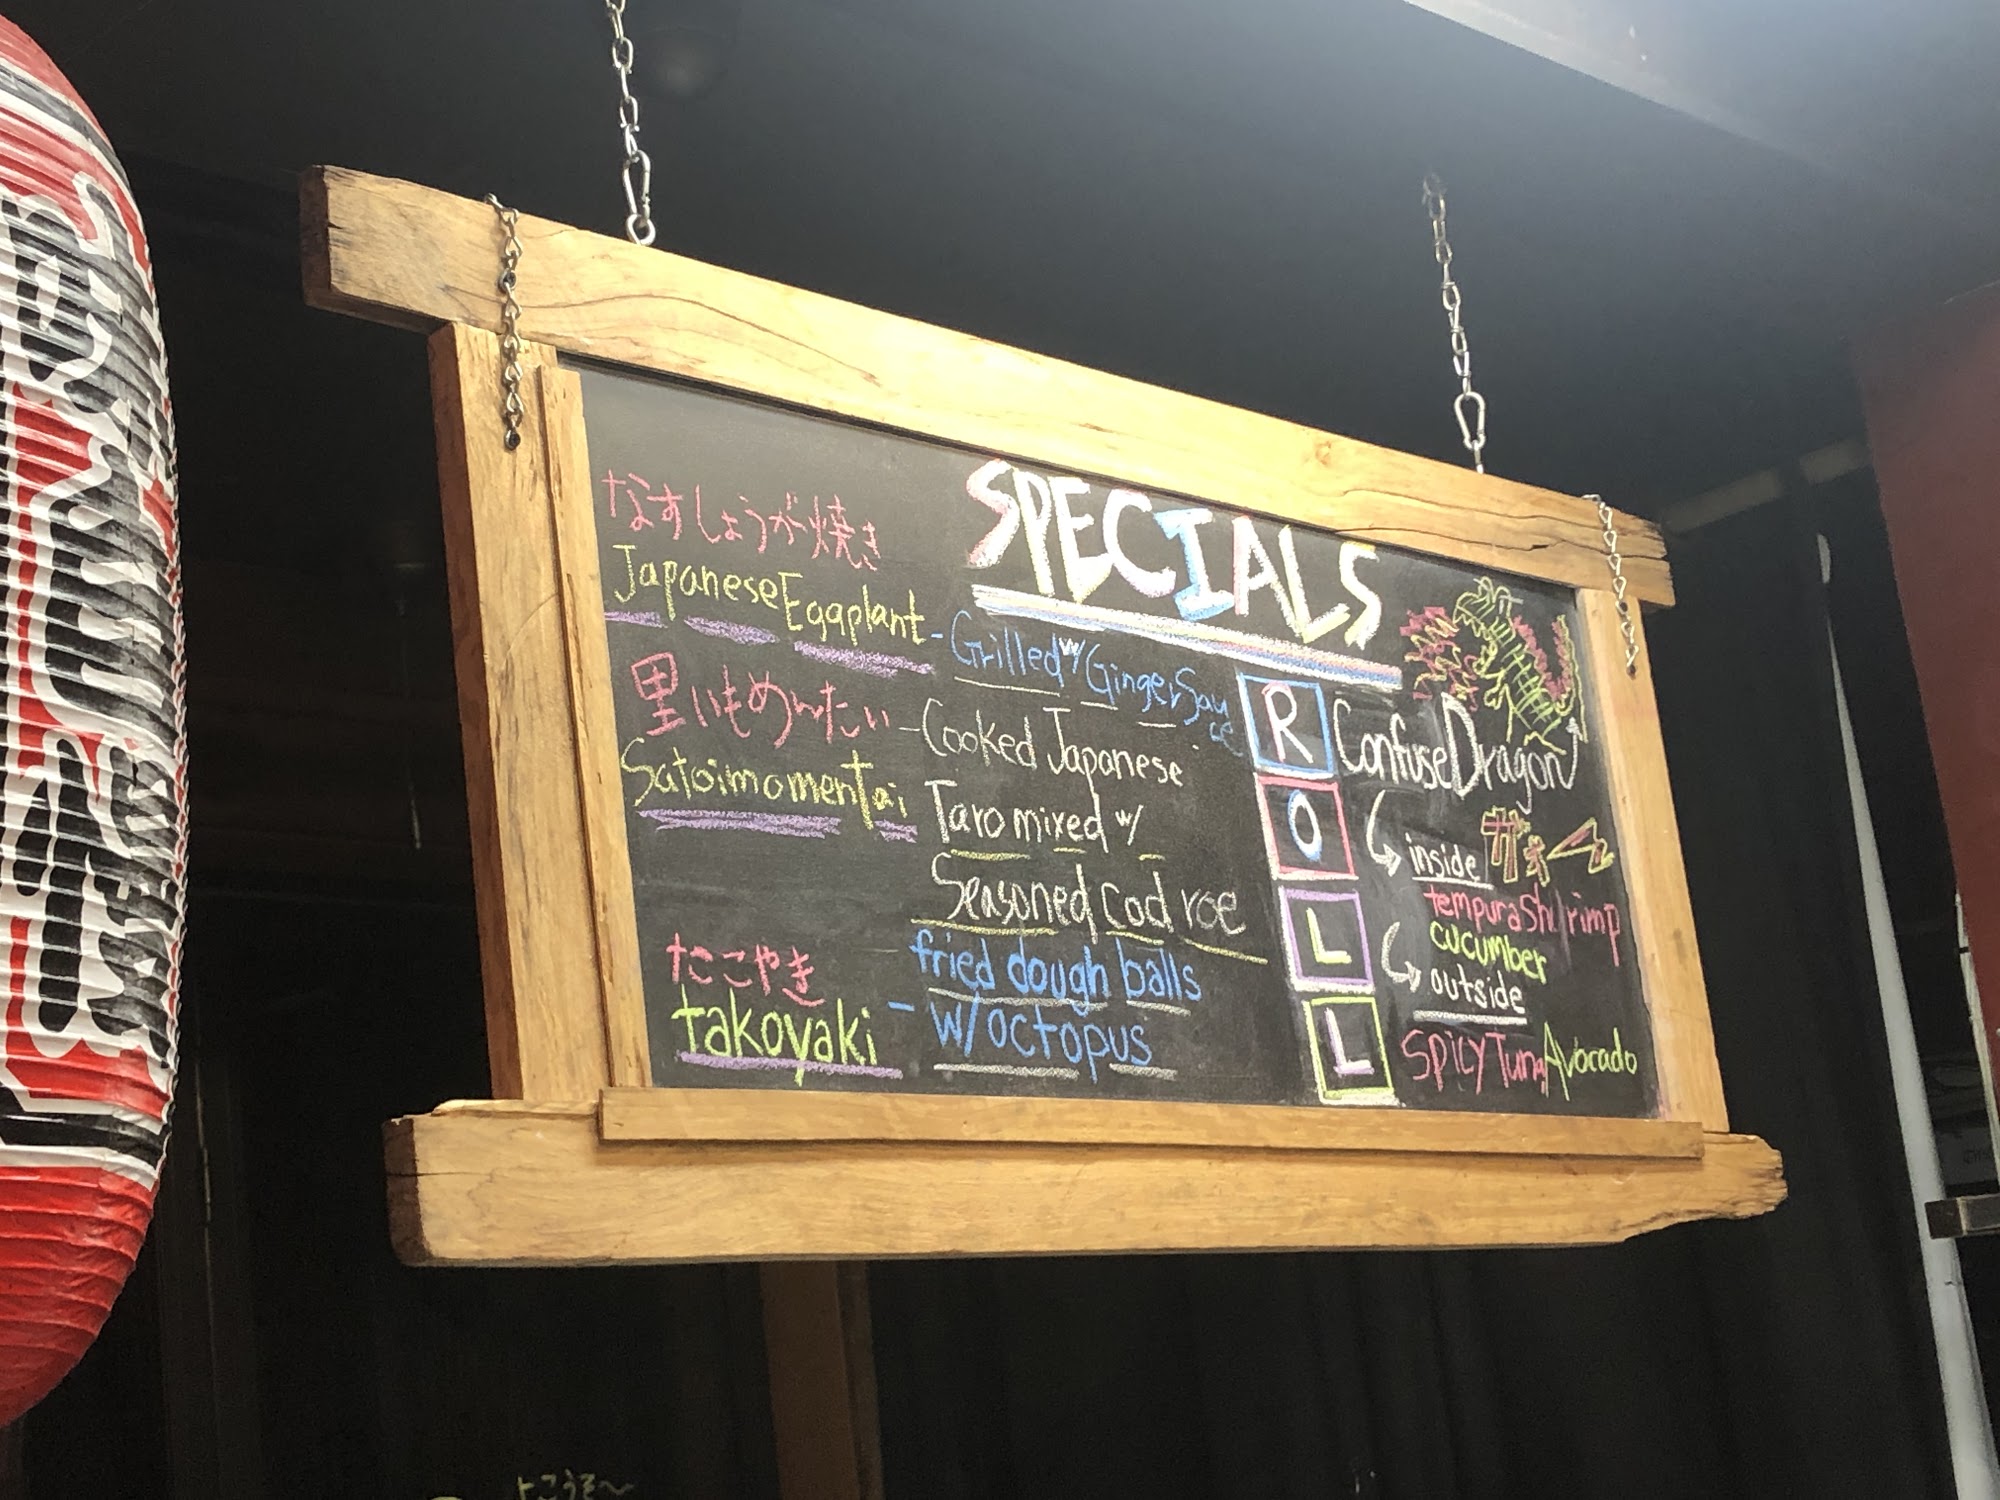 SPECIALS
なすしょうが焼き
Japanese Eggplant - Grilled w/ Ginger Sauce
里いもめんたい
Satoimomentai
- Cooked Japanese
Taro mixed w/
Seasoned cod roe
たこやき
takoyaki -
fried dough balls
w/ octopus
ROLL
Confuse Dragon
inside
ガオーん
tempura Shrimp
cucumber
outside
Spicy Tuna Avocado
ようこそ〜